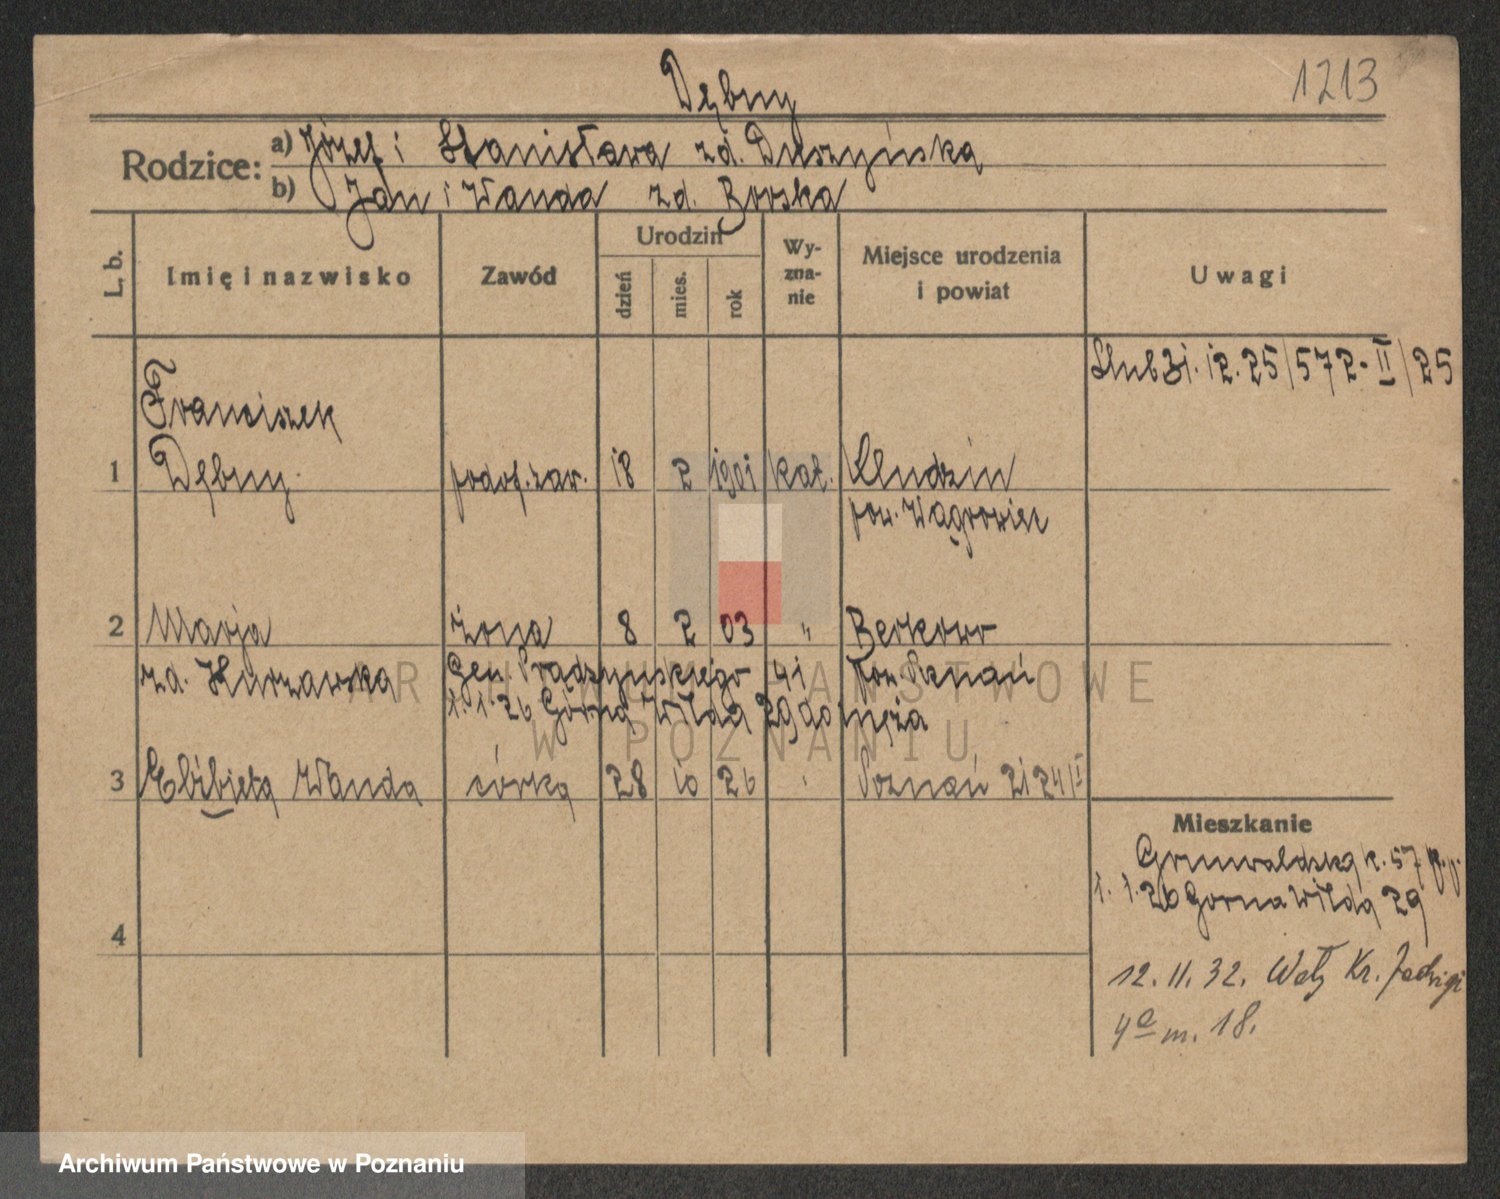 Dębny
1213
Rodzice:
a) Józef i Stanisława zd. Duszyńska
b) Jan i Wanda zd. Borska
L. b.
Imię i nazwisko
Zawód
Urodzin
dzień
mies.
rok
Wy-
zna-
nie
Miejsce urodzenia
i powiat
Uwagi
Ślub 31. 12. 25/572-II/25
Franciszek
1 Dębny podof. zaw. 18 2 1901 kat.
pow. Wągrowiec
2 Marja żona 8 2 03 "
zd. Gen. Prądzyńskiego 41 pow. Poznań
1. 1. 26 Górna Wilda 29 do męża
3 Elżbieta Wanda córka 28 10 26 Poznań
4
Mieszkanie
Grunwaldzka k. 57
1. 1. 26 Górna Wilda 29
12. II. 32. Wały Kr. Jadwigi
4a m. 18.
ARCHIWUM PAŃSTWOWE
W POZNANIU
Archiwum Państwowe w Poznaniu